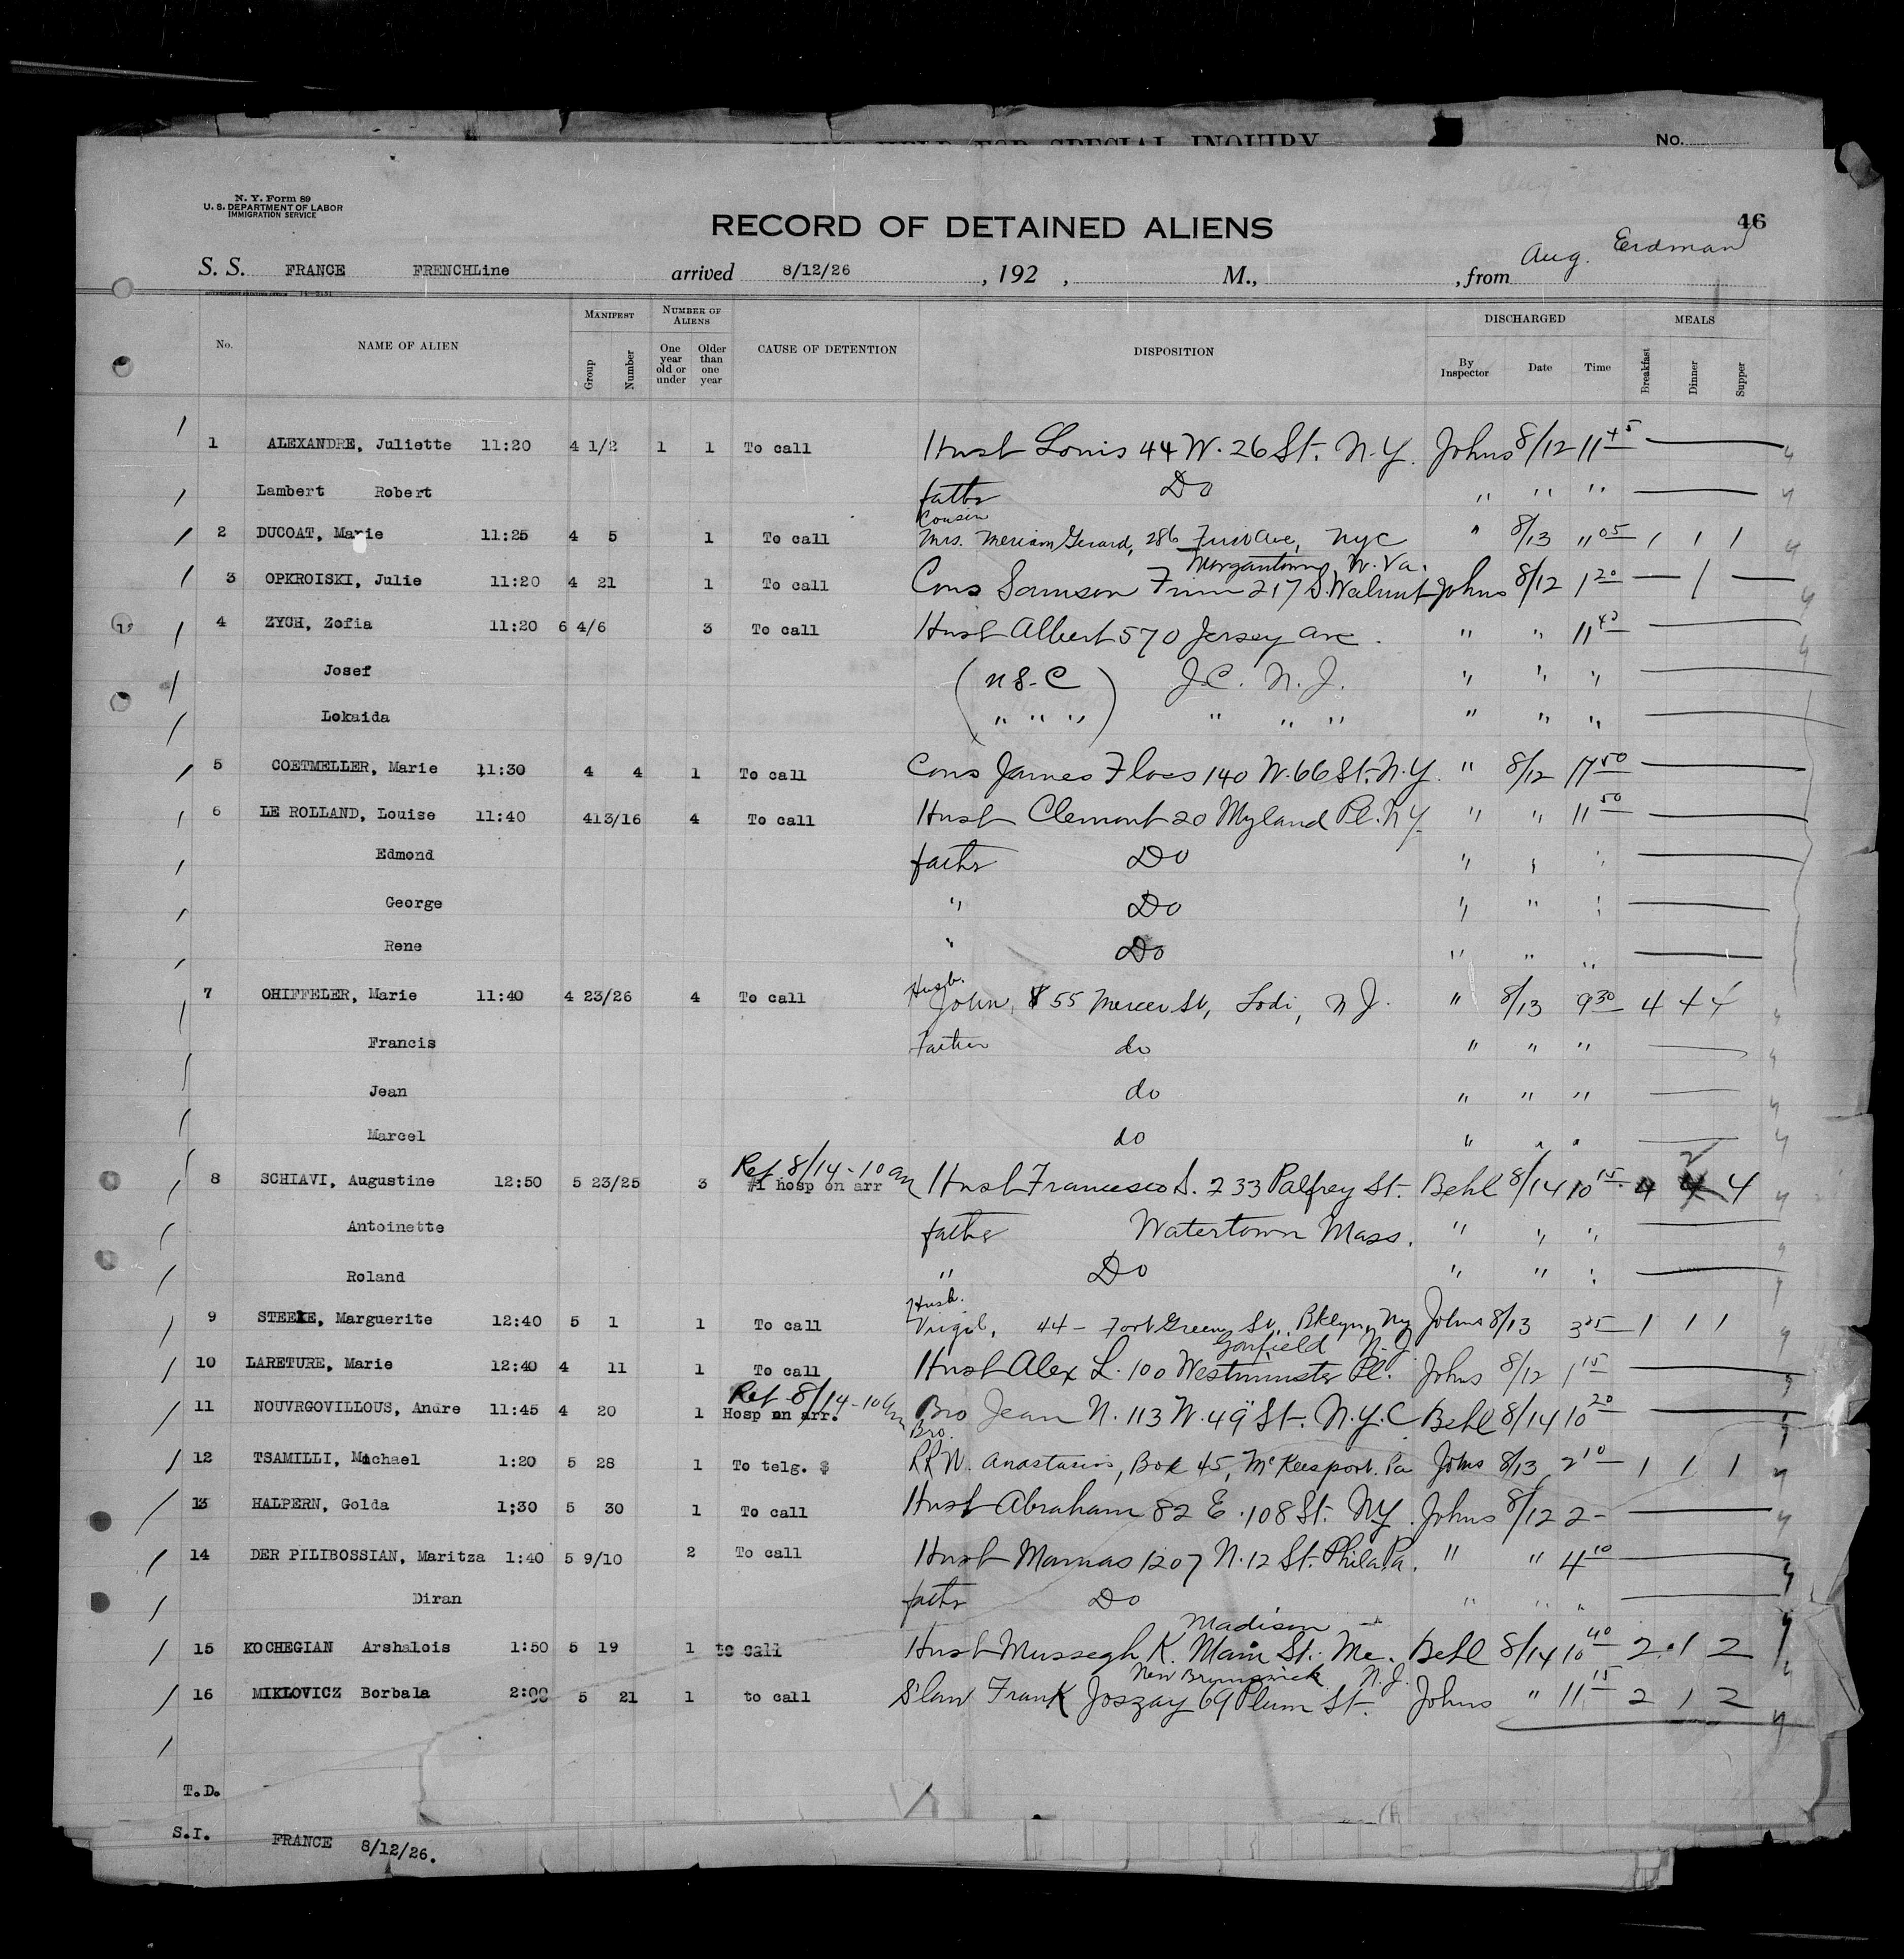 No.
N. Y. Form 89
U. S. DEPARTMENT OF LABOR
IMMIGRATION SERVICE
RECORD OF DETAINED ALIENS
46
S. S. FRANCE FRENCHLine arrived 8/12/26 , 192 , M., , from Aug. Erdman
No. NAME OF ALIEN MANIFEST Group Number NUMBER OF ALIENS One year old or under Older than one year CAUSE OF DETENTION DISPOSITION DISCHARGED By Inspector Date Time MEALS Breakfast Dinner Supper
1 ALEXANDRE, Juliette 11:20 4 1/2 1 1 To call Husb Louis 44 W. 26 St. N.Y. Johns 8/12 11 45
Lambert Robert father Do " " "
Cousin
2 DUCOAT, Marie 11:25 4 5 1 To call Mrs. Meriam Gerard, 286 First Ave, NYC " 8/13 11 05 1 1 1
Morgantown W. Va.
3 OPKROISKI, Julie 11:20 4 21 1 To call Cous Samson 217 S. Walnut Johns 8/12 1 20 — 1 —
4 ZYCH, Zofia 11:20 6 4/6 3 To call Husb Albert 570 Jersey Ave. " " 11 40
Josef (U S. C) J.C. N.J. " " "
Lokaida (" " ") " " " " " "
5 COETMELLER, Marie 11:30 4 4 1 To call Cous James Floes 140 W. 66 St. N.Y. " 8/12 11 50
6 LE ROLLAND, Louise 11:40 413/16 4 To call Husb Clemont 20 Myland Pl. N.Y. " " 11 50
Edmond father Do " " "
George " Do " " "
Rene " Do " " "
Husb.
7 OHIFFELER, Marie 11:40 4 23/26 4 To call John, 55 Mercer St, Lodi, N.J. " 8/13 9 30 4 4 4
Francis Father do " " "
Jean do " " "
Marcel do " " "
Ret 8/14 - 10 am
8 SCHIAVI, Augustine 12:50 5 23/25 3 #1 hosp on arr Husb Francesco S. 233 Palfrey St. Behl 8/14 10 15 4 2 4
Antoinette father Watertown Mass. " " "
Roland " Do " " "
Husb.
9 STEELE, Marguerite 12:40 5 1 1 To call Virgil, 44 - Fort Green St., Bklyn, NY Johns 8/13 3 25 1 1 1
Garfield N.J.
10 LARETURE, Marie 12:40 4 11 1 To call Husb Alex L. 100 Westminster Pl. Johns 8/12 1 15
Ret 8/14 - 10 am
11 NOUVRGOVILLOUS, Andre 11:45 4 20 1 Hosp on arr. Bro Jean N. 113 W. 49 St. N.Y.C Behl 8/14 10 20
Bro.
12 TSAMILLI, Michael 1:20 5 28 1 To telg. $ RRW. Anastasios, Box 45, McKeesport. Pa Johns 8/13 2 10 1 1 1
13 HALPERN, Golda 1;30 5 30 1 To call Husb Abraham 82 E. 108 St. NY. Johns 8/12 2 -
14 DER PILIBOSSIAN, Maritza 1:40 5 9/10 2 To call Husb Mamas 1207 N. 12 St. Phila Pa. " " 4 10
Diran father Do " " "
Madison
15 KOCHEGIAN Arshalois 1:50 5 19 1 to call Husb Mussegh K. Main St. Me. Behl 8/14 10 40 2 1 2
New Brunswick N.J.
16 MIKLOVICZ Borbala 2:00 5 21 1 to call S'law Frank Joszay 69 Plum St. Johns " 11 15 2 1 2
T.D.
S.I. FRANCE 8/12/26.